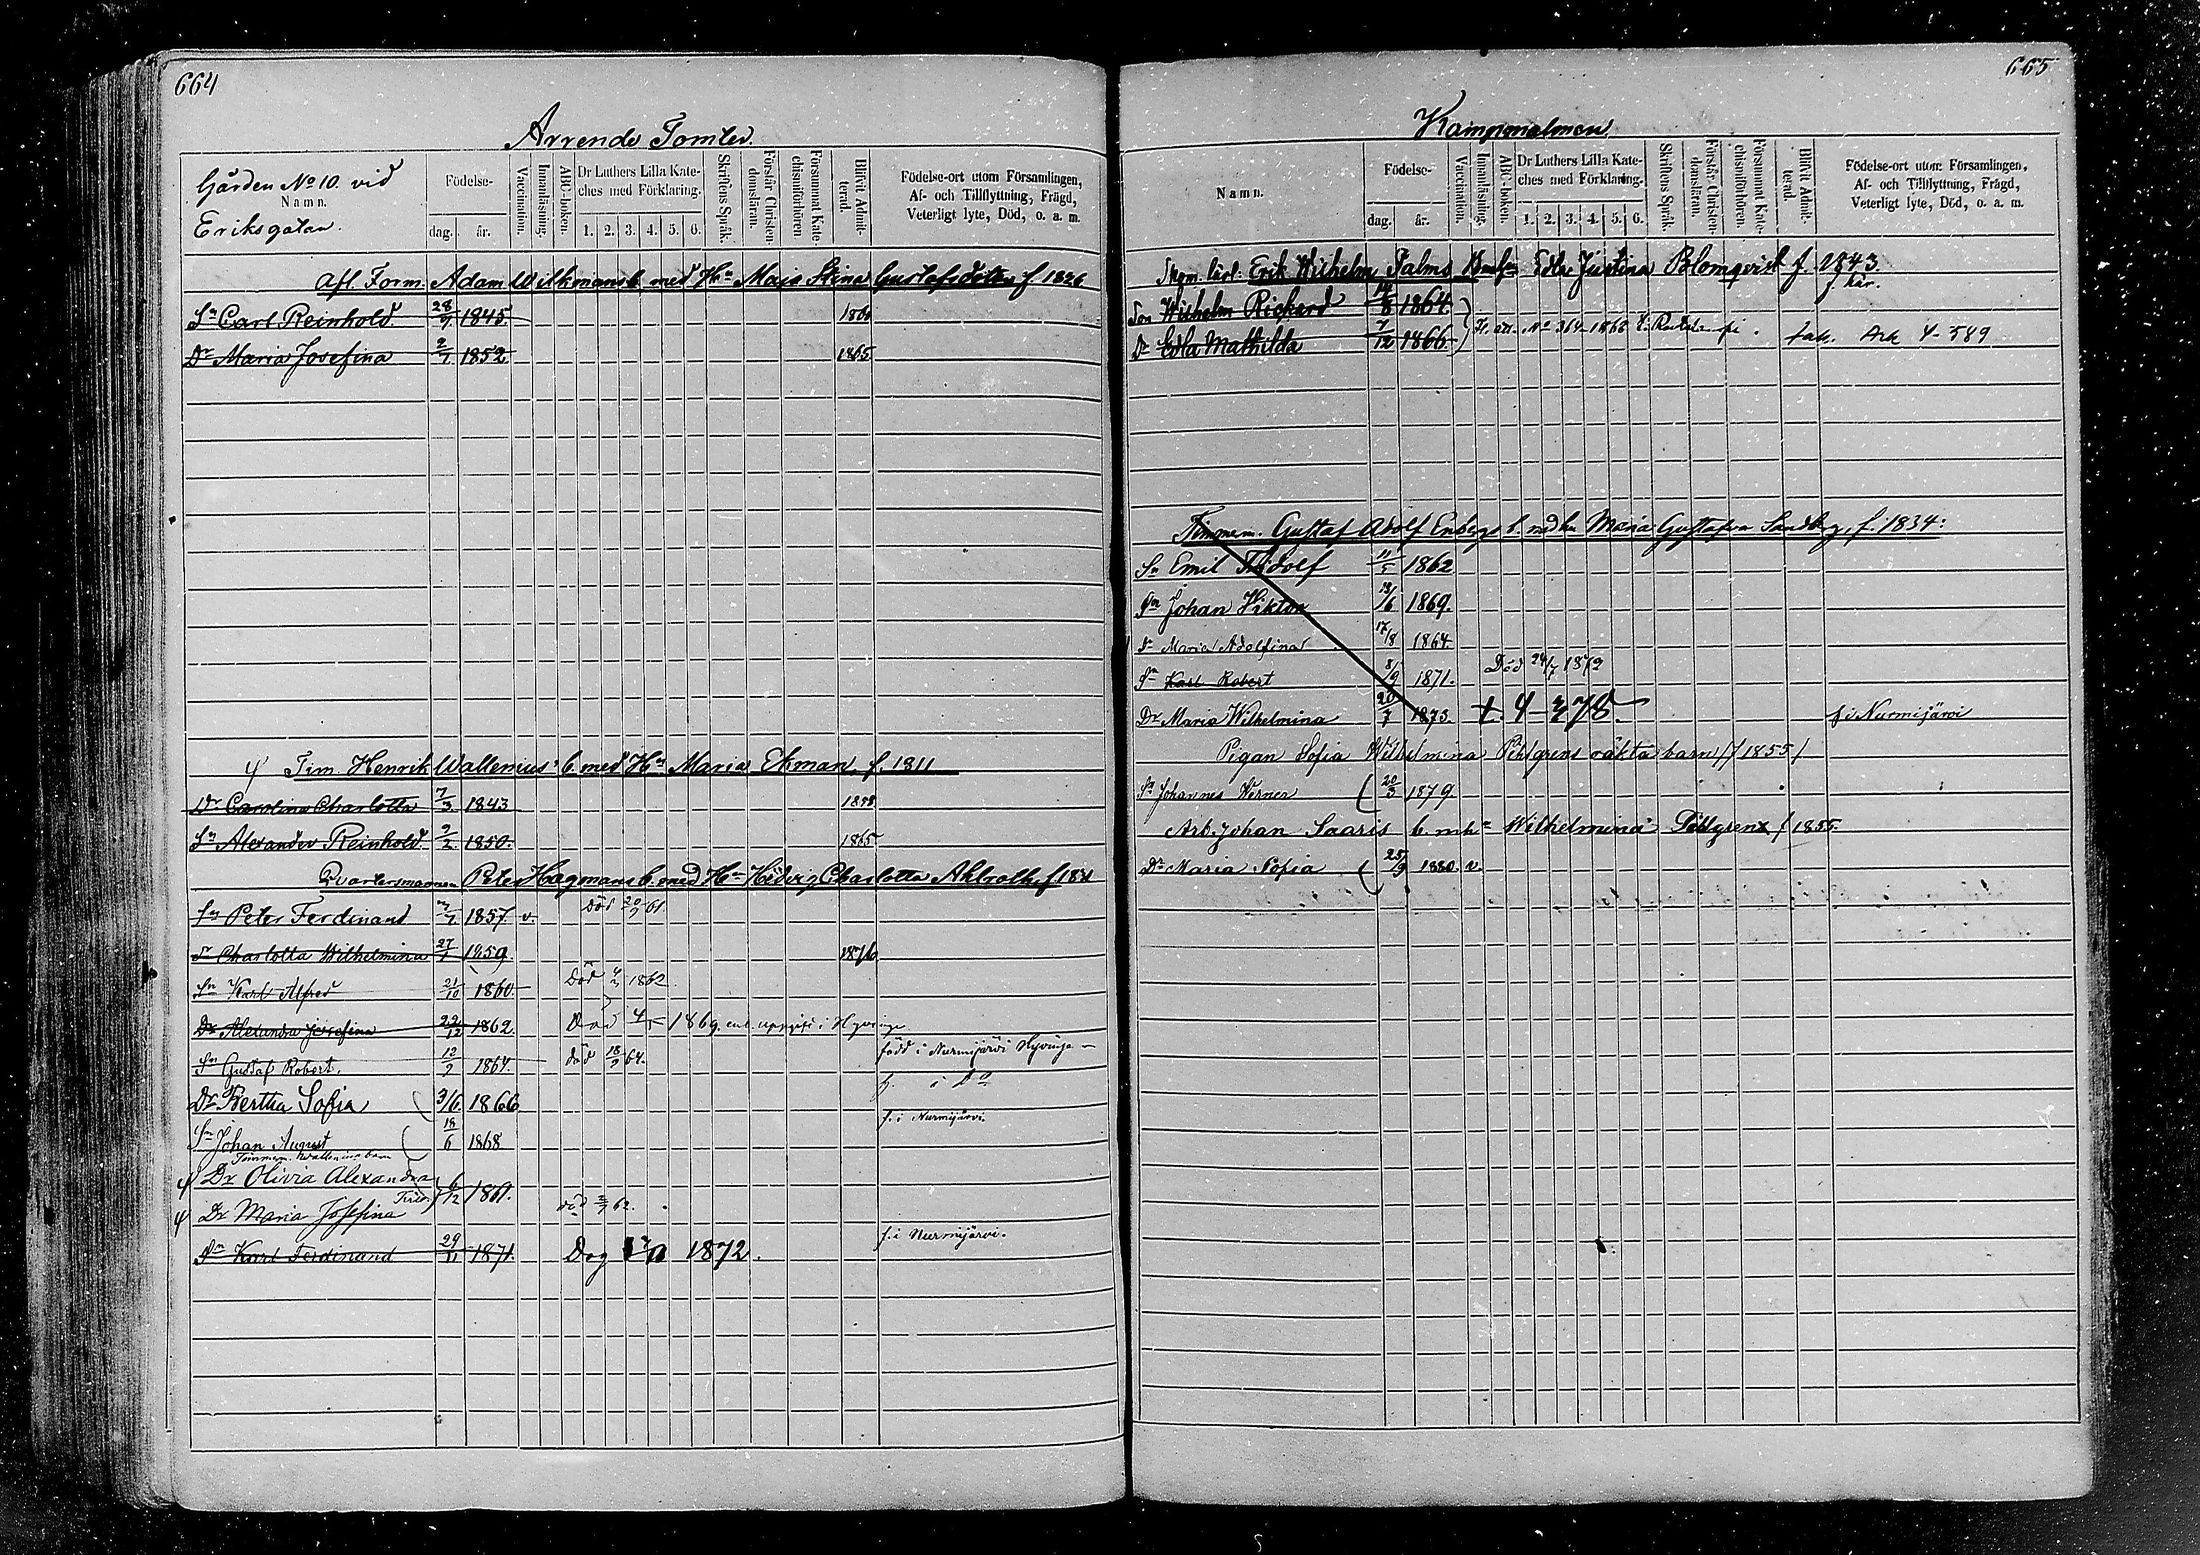 664
Arrende Tomter.
Gården No 10. vid
Namn.
Eriksgatan.
Födelse-
dag. år.
Vaccination.
Innanläsning.
ABC-boken.
Dr Luthers Lilla Kateches med Förklaring.
1. 2. 3. 4. 5. 6.
Skriftens Språk.
Förstår Christendomsläran.
Försummat Katechismiförhören.
Blifvit Admitterad.
Födelse-ort utom Församlingen,
Af- och Tillflyttning, Frägd,
Veterligt lyte, Död, o. a. m.
Afl. Form. Adam Wilkmans b. med Hu Maja Stina Gustafsdotter f. 1826
Sn Carl Reinhold 28/9 1845. 1860
Dr Maria Josefina 2/7 1852 1865
Tim. Henrik Wallenius' b. med Hu Maria Ekman f. 1811
Dr Carolina Charlotta 7/3 1843
Sn Alexander Reinhold 9/2 1850. 1865
Qvartersmannen Peter Hagmans b. med Hu Hedvig Charlotta Ahlroth f
Sn Peter Ferdinand 1857. v. Död 20/9 61.
Dr Charlotta Wilhelmina 1859 1876
Sn Karl Alfred 21/10 1860 Död 1862.
Dr Alexandra Josefina 22/12 1862. Död 1869. enl. uppgift i Hyvinge
Sn Gustaf Robert. 12/7 1864. död 18/9 64. född i Nurmijärvi Hyvinge
Dr Bertha Sofia 3/6. 1866 f. i do
Sn Johan August 18/6 1868 f. i Nurmijärvi.
Timmerm. Wallenius barn
Dr Olivia Alexandra
6/12 1861.
Dr Maria Josefina död 62.
Sn Karl Ferdinand 29/11 1871. Dog 1872. f. i Nurmijärvi.
665
Kampmalmen
Namn.
Födelse-
dag. år.
Vaccination.
Innanläsning.
ABC-boken.
Dr Luthers Lilla Kateches med Förklaring.
1. 2. 3. 4. 5. 6.
Skriftens Språk.
Förstår Christendomsläran.
Försummat Katechismiförhören.
Blifvit Admitterad.
Födelse-ort utom Församlingen,
Af- och Tillflyttning, Frägd,
Veterligt lyte, Död, o. a. m.
Erik Wilhelm Palms Edla Justina Blomqvist f. 1843.
f här.
Son Wilhelm Rickard 1864.
Dr Edla Mathilda 7/12 1866. No 364 1868 Ark 4-589
Timmerm. Gustaf Adolf Enbergs b. med hu Maria Gustafva Sandberg, f. 1834:
Sn Emil Fridolf 11/5 1862
Sn Johan Viktor 13/6 1869.
Dr Maria Adolfina 17/8 1864.
Sn Karl Robert 8/9 1871. Död 24/7 1872
Dr Maria Wilhelmina 20/7 1873. t. 4-378 f. i Nurmijärvi
Pigan Sofia Wilhelmina Pihlgrens oäkta barn /f 1855/
Sn Johannes Verner 20/3 1879
Arb. Johan Saaris b. m. hu Wilhelmina f 1855.
Dr Maria Sofia 25/9 1880. v.